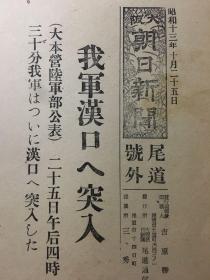 昭和十三年十月二十五日
大阪
朝日新聞
尾道
號外
我軍漢口へ突入
(大本營陸軍部公表) 二十五日午后四時
三十分我軍はついに漢口へ突入した